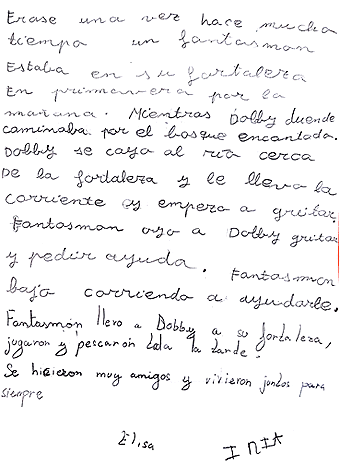 Erase una vez hace mucho
tiempo un fantasmon
Estaba en su fortaleza
En primavera por la
mañana. Mientras Dobby duende
caminaba por el bosque encantado.
Dobby se cayo al rio cerca
De la fortaleza y le llevo la
corriente y empezo a gritar
Fantasmon oyo a Dobby gritar
y pedir ayuda. Fantasmon
bajo corriendo a ayudarle.
Fantasmón llevo a Dobby a su fortaleza,
jugaron y pescaron toda la tarde.
Se hicieron muy amigos y vivieron juntos para
siempre
Elisa INIA